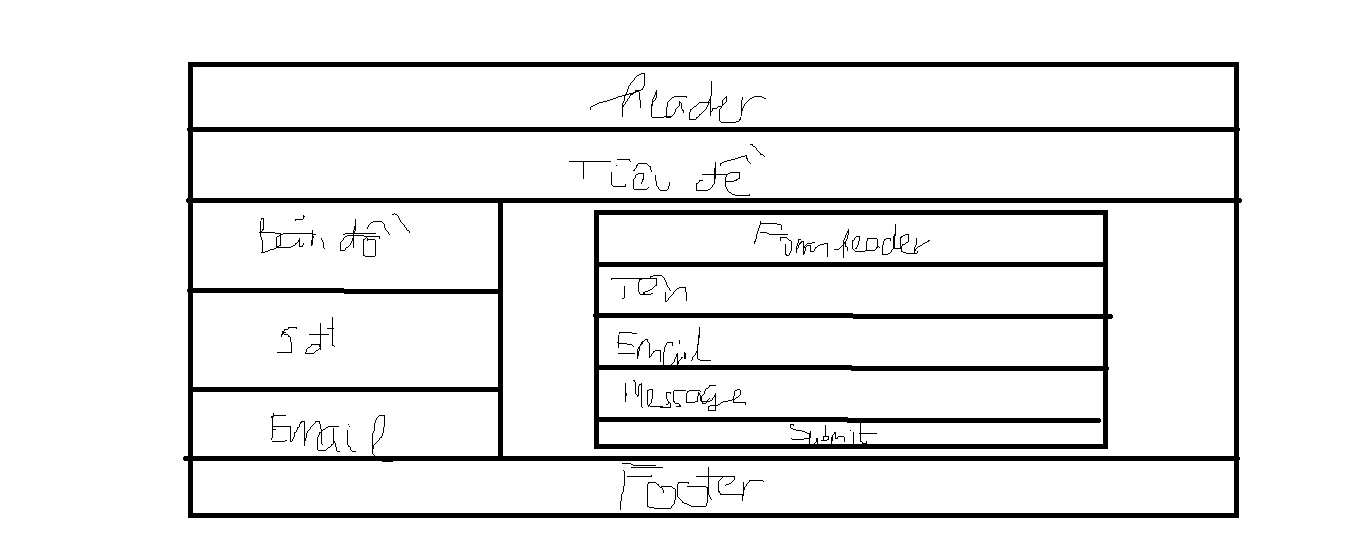 header
Tiêu đề
bản đồ
Sđt
Email
Form header
Tên
Email
Message
Submit
Footer